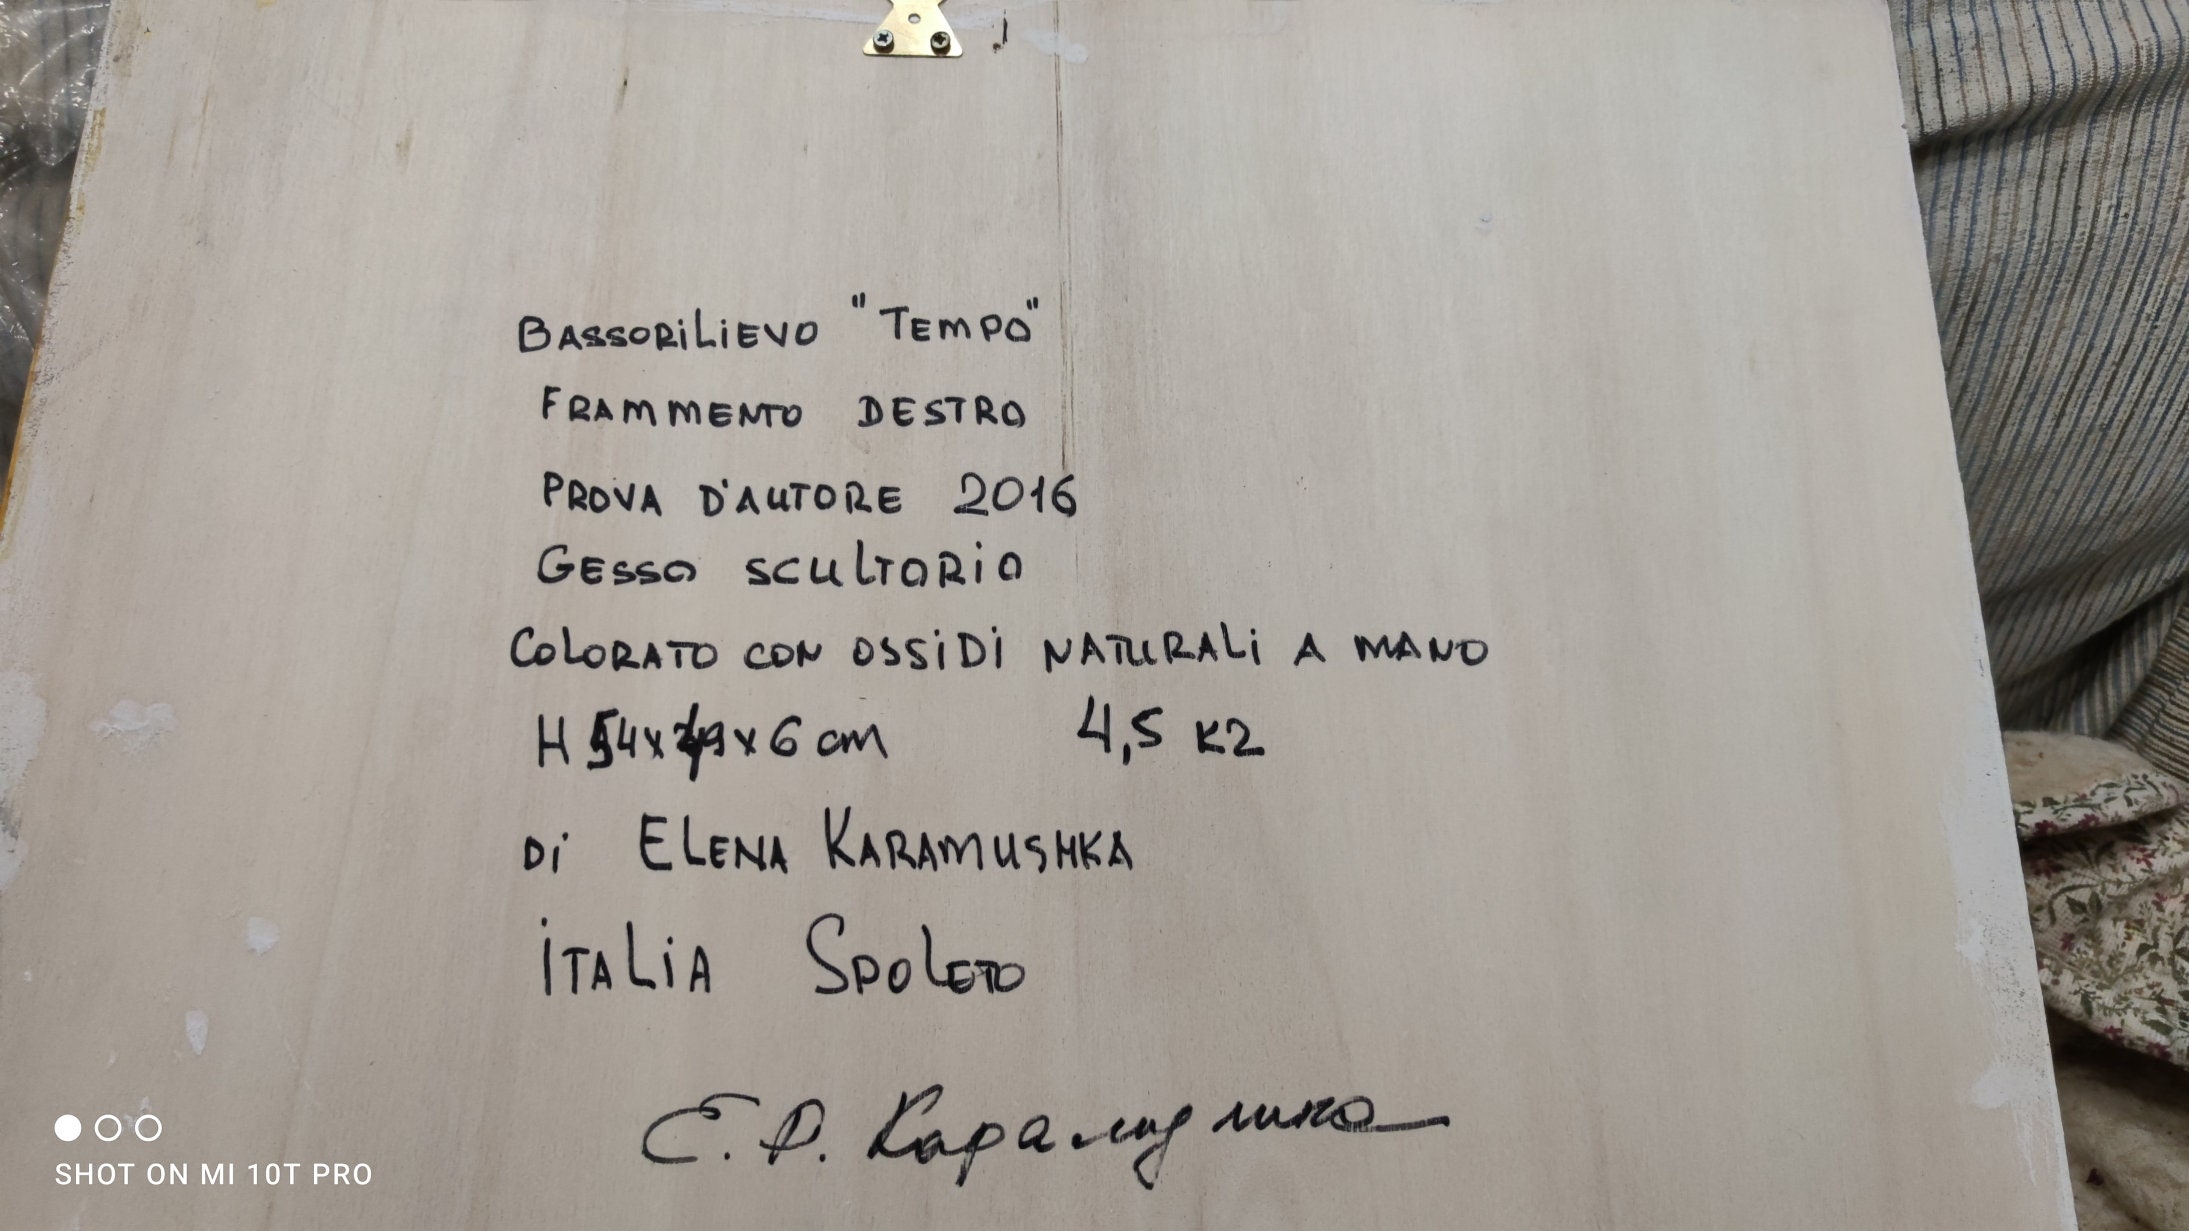 BASSORILIEVO "TEMPO"
FRAMMENTO DESTRO
PROVA D'AUTORE 2016
GESSO SCULTORIO
COLORATO CON OSSIDI NATURALI A MANO
H 54x49x6 cm 4,5 кг
Di ELENA KARAMUSHKA
iTALiA SPOLETO
Е. Р. Карамушка
SHOT ON MI 10T PRO